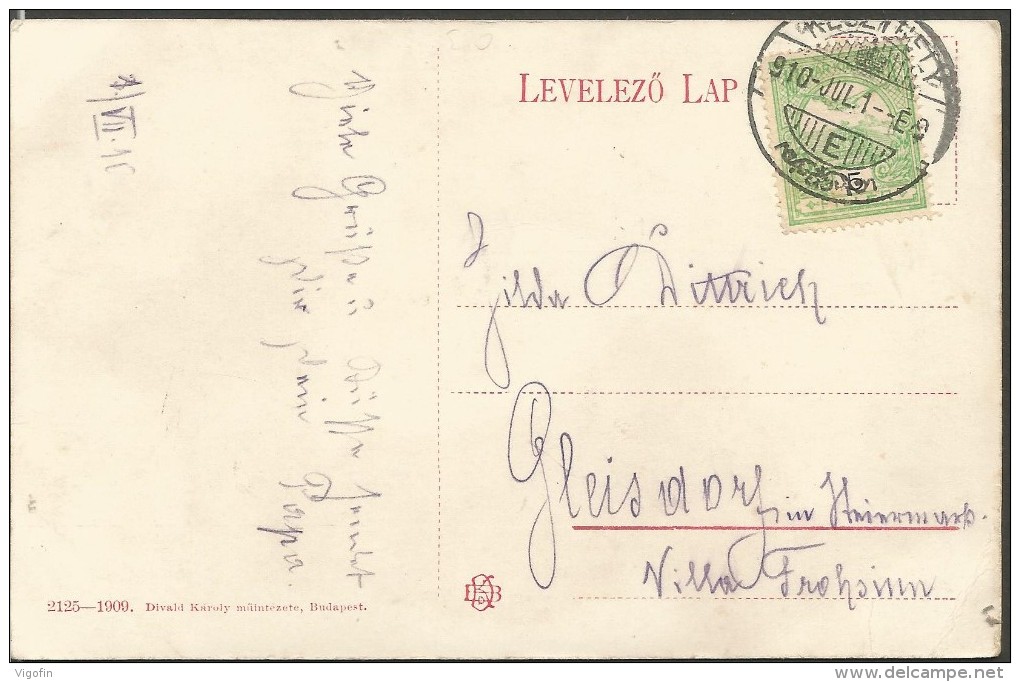 LEVELEZŐ LAP
KESZTHELY
910-JUL.1--É9
E
1/VII.10
Viele Grüße u. Küsse sendet
Dir Dein
Papa.
Hilda Dittrich
Gleisdorf in Steiermark.
Villa Frohsinn
2125—1909. Divald Károly műintézete, Budapest.
DKB
Vigofin
delcampe.net